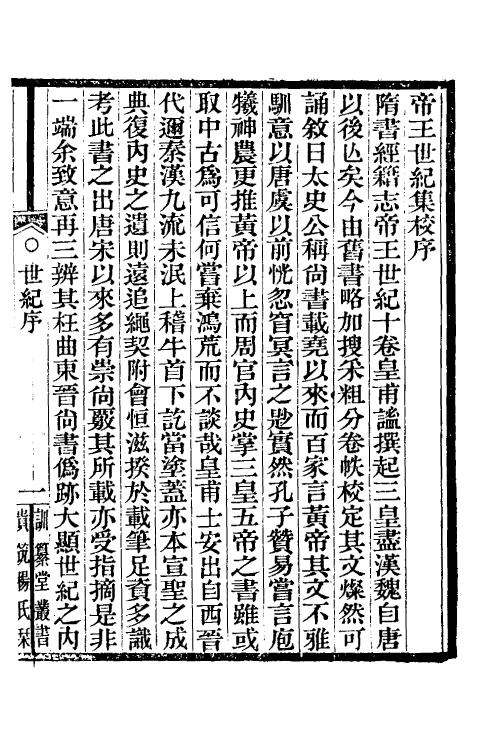 帝王世紀集校序
隋書經籍志帝王世紀十卷皇甫謐撰起三皇盡漢魏自唐
以後亾矣今由舊書略加搜釆粗分卷帙校定其文燦然可
誦敘曰太史公稱尙書載堯以來而百家言黃帝其文不雅
馴意以唐虞以前恍忽窅冥言之尠實然孔子贊易嘗言庖
犧神農更推黃帝以上而周官內史掌三皇五帝之書雖或
取中古爲可信何嘗棄鴻荒而不談哉皇甫士安出自西晉
代邇秦漢九流未泯上稽牛首下訖當塗蓋亦本宣聖之成
典復內史之遺則遠追繩契附會恒滋揆於載筆足資多識
考此書之出唐宋以來多有崇尙覈其所載亦受指摘是非
一端余致意再三辨其枉曲東晉尙書僞跡大顯世紀之內
世紀序
一
訓纂堂叢書
貴筑楊氏栞